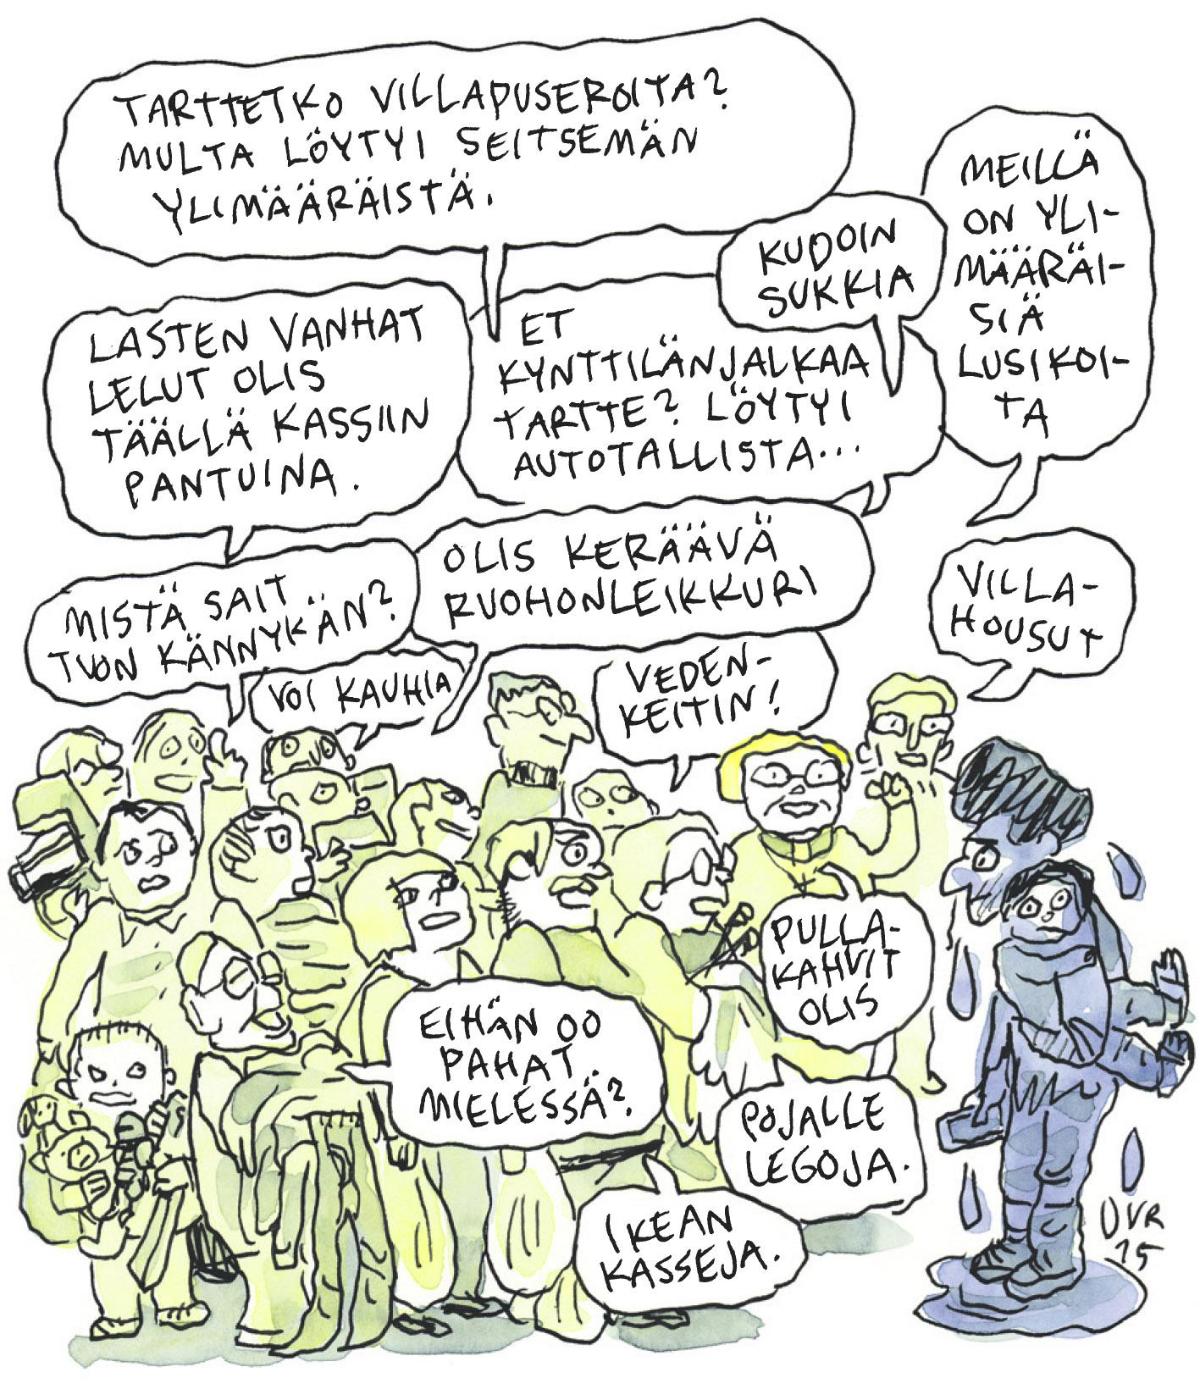 TARTTETKO VILLAPUSEROITA?
MULTA LÖYTYI SEITSEMÄN
YLIMÄÄRÄISTÄ.
MEILLÄ
ON YLI-
MÄÄRÄI-
SIÄ
LUSIKOI-
TA
KUDOIN
SUKKIA
LASTEN VANHAT
LELUT OLIS
TÄÄLLÄ KASSIIN
PANTUINA.
ET
KYNTTILÄNJALKAA
TARTTE? LÖYTYI
AUTOTALLISTA...
MISTÄ SAIT
TUON KÄNNYKÄN?
OLIS KERÄÄVÄ
RUOHONLEIKKURI
VILLA-
HOUSUT
VOI KAUHIA
VEDEN-
KEITIN!
PULLA-
KAHVIT
OLIS
EIHÄN OO
PAHAT
MIELESSÄ?
POJALLE
LEGOJA.
IKEAN
KASSEJA.
UVR
15